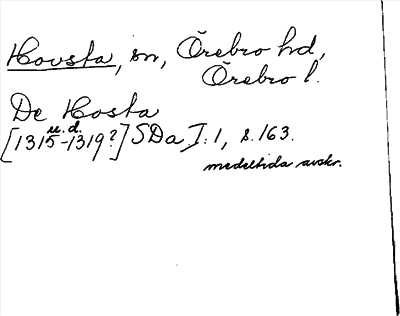 Hovsta, sn, Örebro hd,
Örebro l.
De Hosta
u.d.
[1315-1319?] SDa I:1, s. 163.
medeltida avskr.